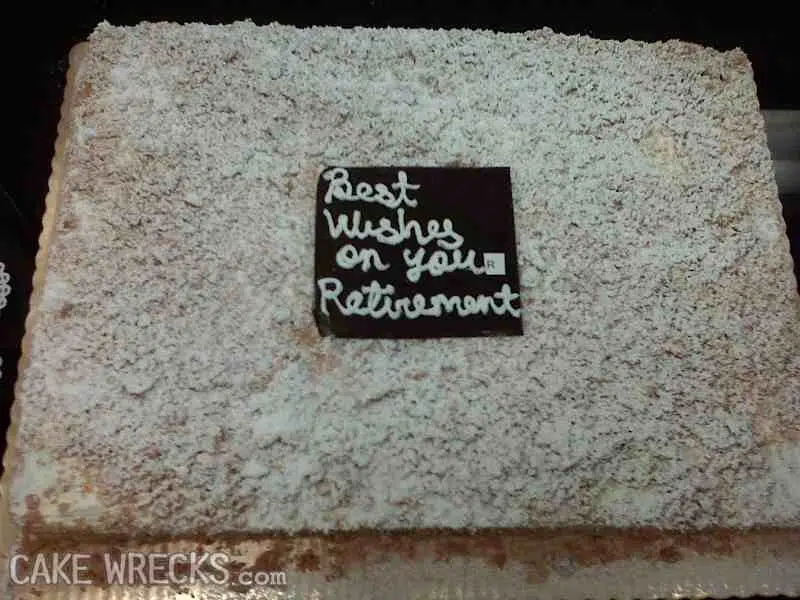 Best
Wishes
on youR
Retirement
CAKE WRECKS.com